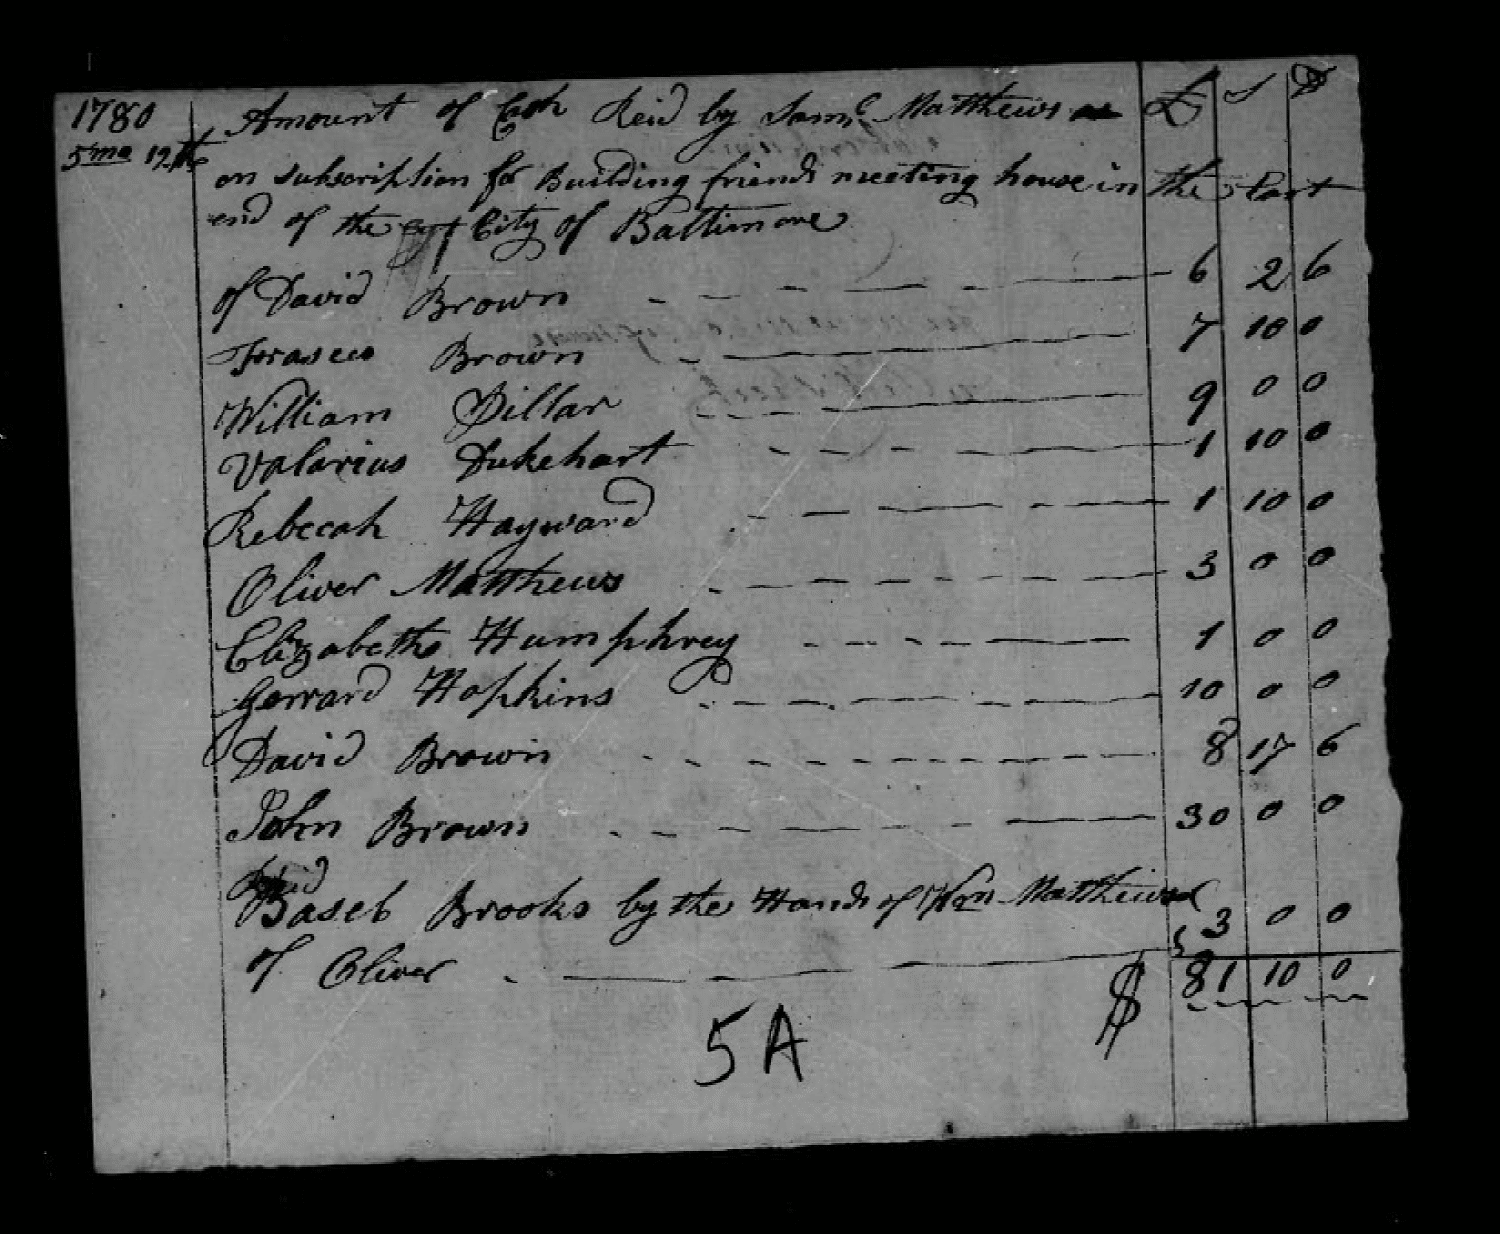 1780
5mo 19th
Amount of Cash Reid by Saml Matthews £ S D
on subscription for Building friends meeting house in the East
end of the City of Baltimore
of David Brown 6 2 6
Brown 7 10 0
William Dillar 9 0 0
Valarius Dukehart 1 10 0
Rebecah Hayward 1 10 0
Oliver Matthews 3 0 0
Elizabeth Humphrey 1 0 0
Gerrard Hopkins 10 0 0
David Brown 8 17 6
John Brown 30 0 0
Baseb Brooks by the Hands of Wm Matthews 3 0 0
of Oliver 81 10 0
5A